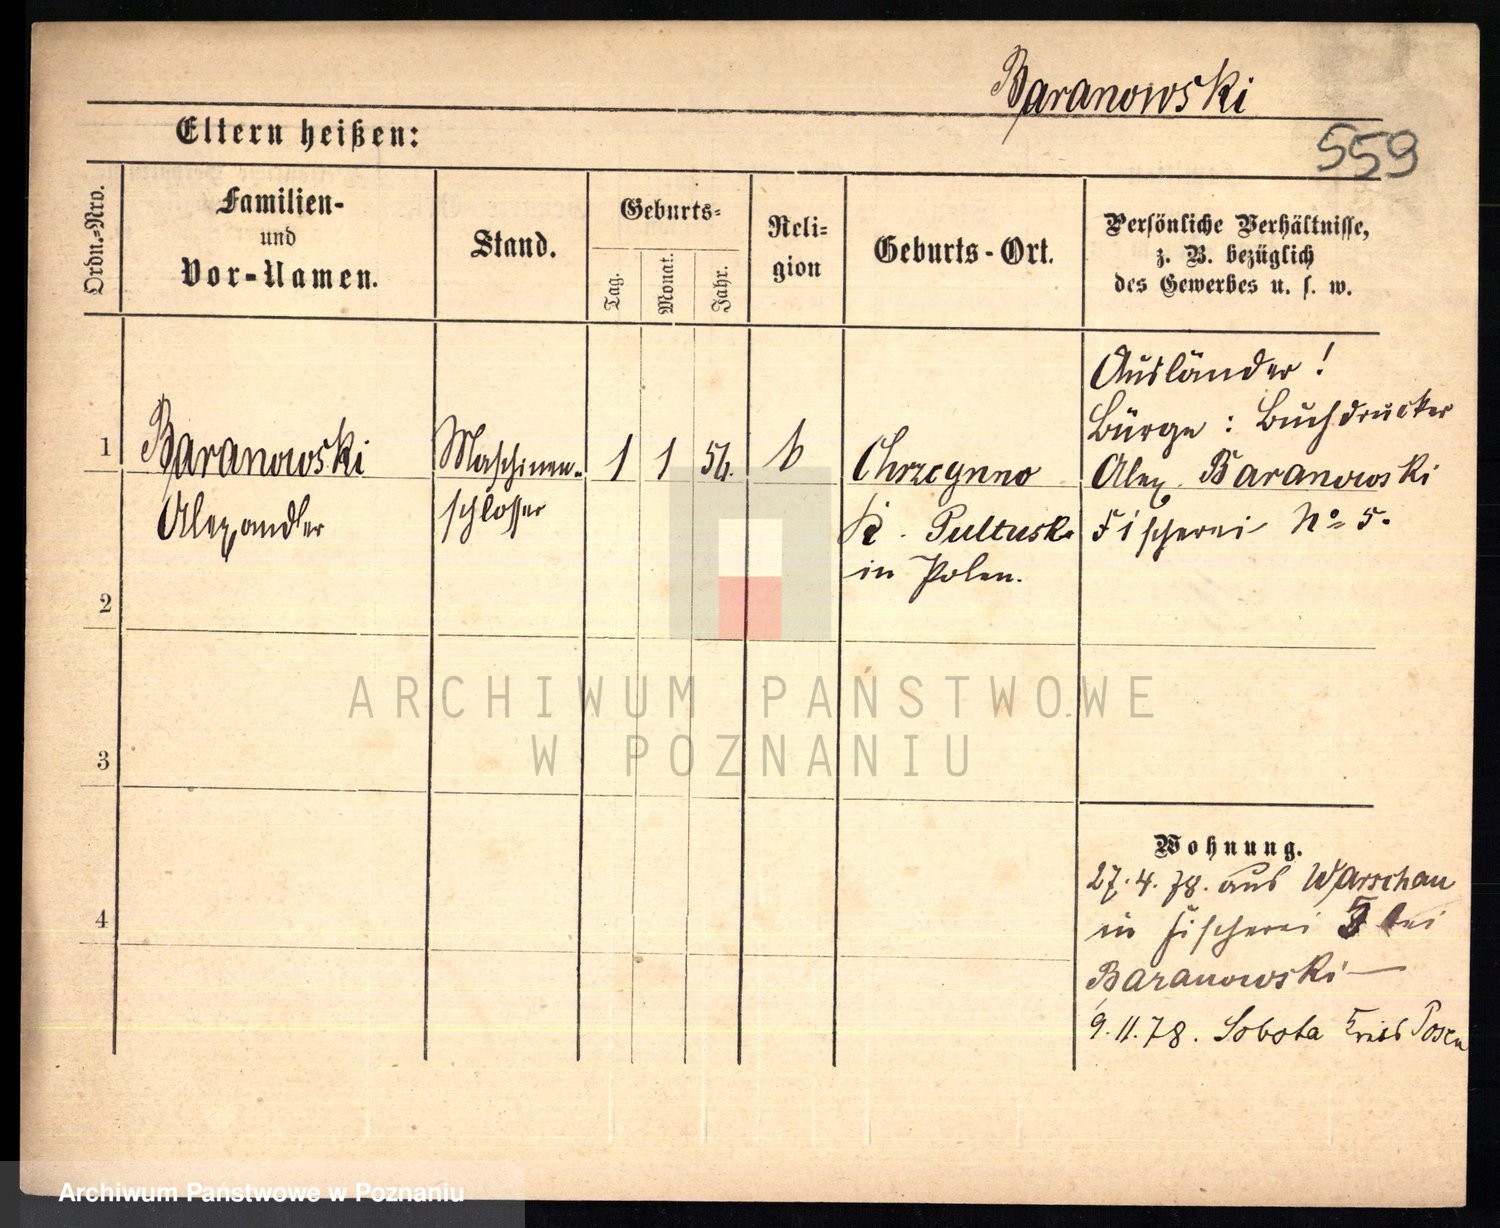 Baranowski
559
Eltern heißen:
Ordn.-Nro.
Familien-
und
Vor-Namen.
Stand.
Geburts-
Tag.
Monat.
Jahr.
Reli-
gion
Geburts-Ort.
Persönliche Verhältnisse,
z. B. bezüglich
des Gewerbes u. s. w.
1
Baranowski
Alexander
Maschinen-
schlosser
1
1
54.
Chrzcynno
K. Pultusk
in Polen.
Ausländer!
Bürge: Buchdrucker
Alex Baranowski
Fischerei No 5.
2
3
4
Wohnung.
27.4.78. aus Warschau
in Fischerei 5 bei
Baranowski —
9.11.78. Sobota Kreis Posen
ARCHIWUM PAŃSTWOWE
W POZNANIU
Archiwum Państwowe w Poznaniu